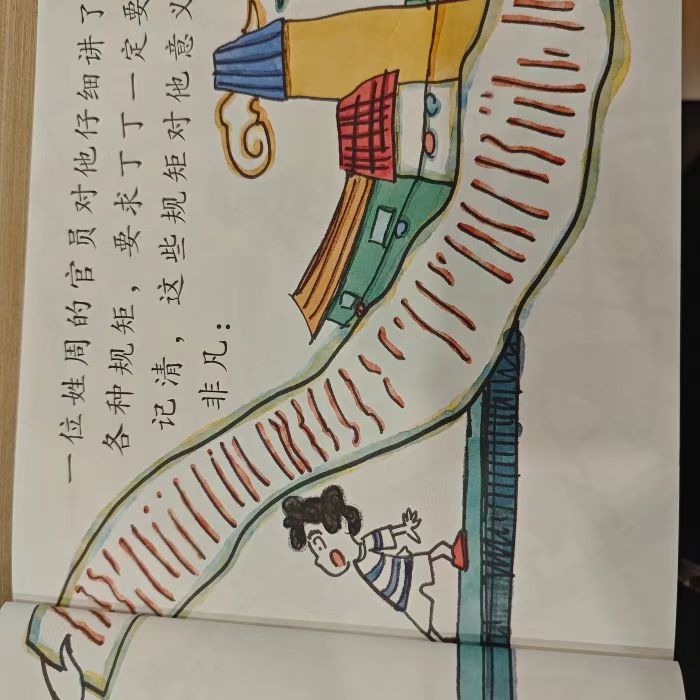 一位姓周的官员对他仔细讲了
各种规矩，要求丁丁一定要
记清，这些规矩对他意义
非凡：